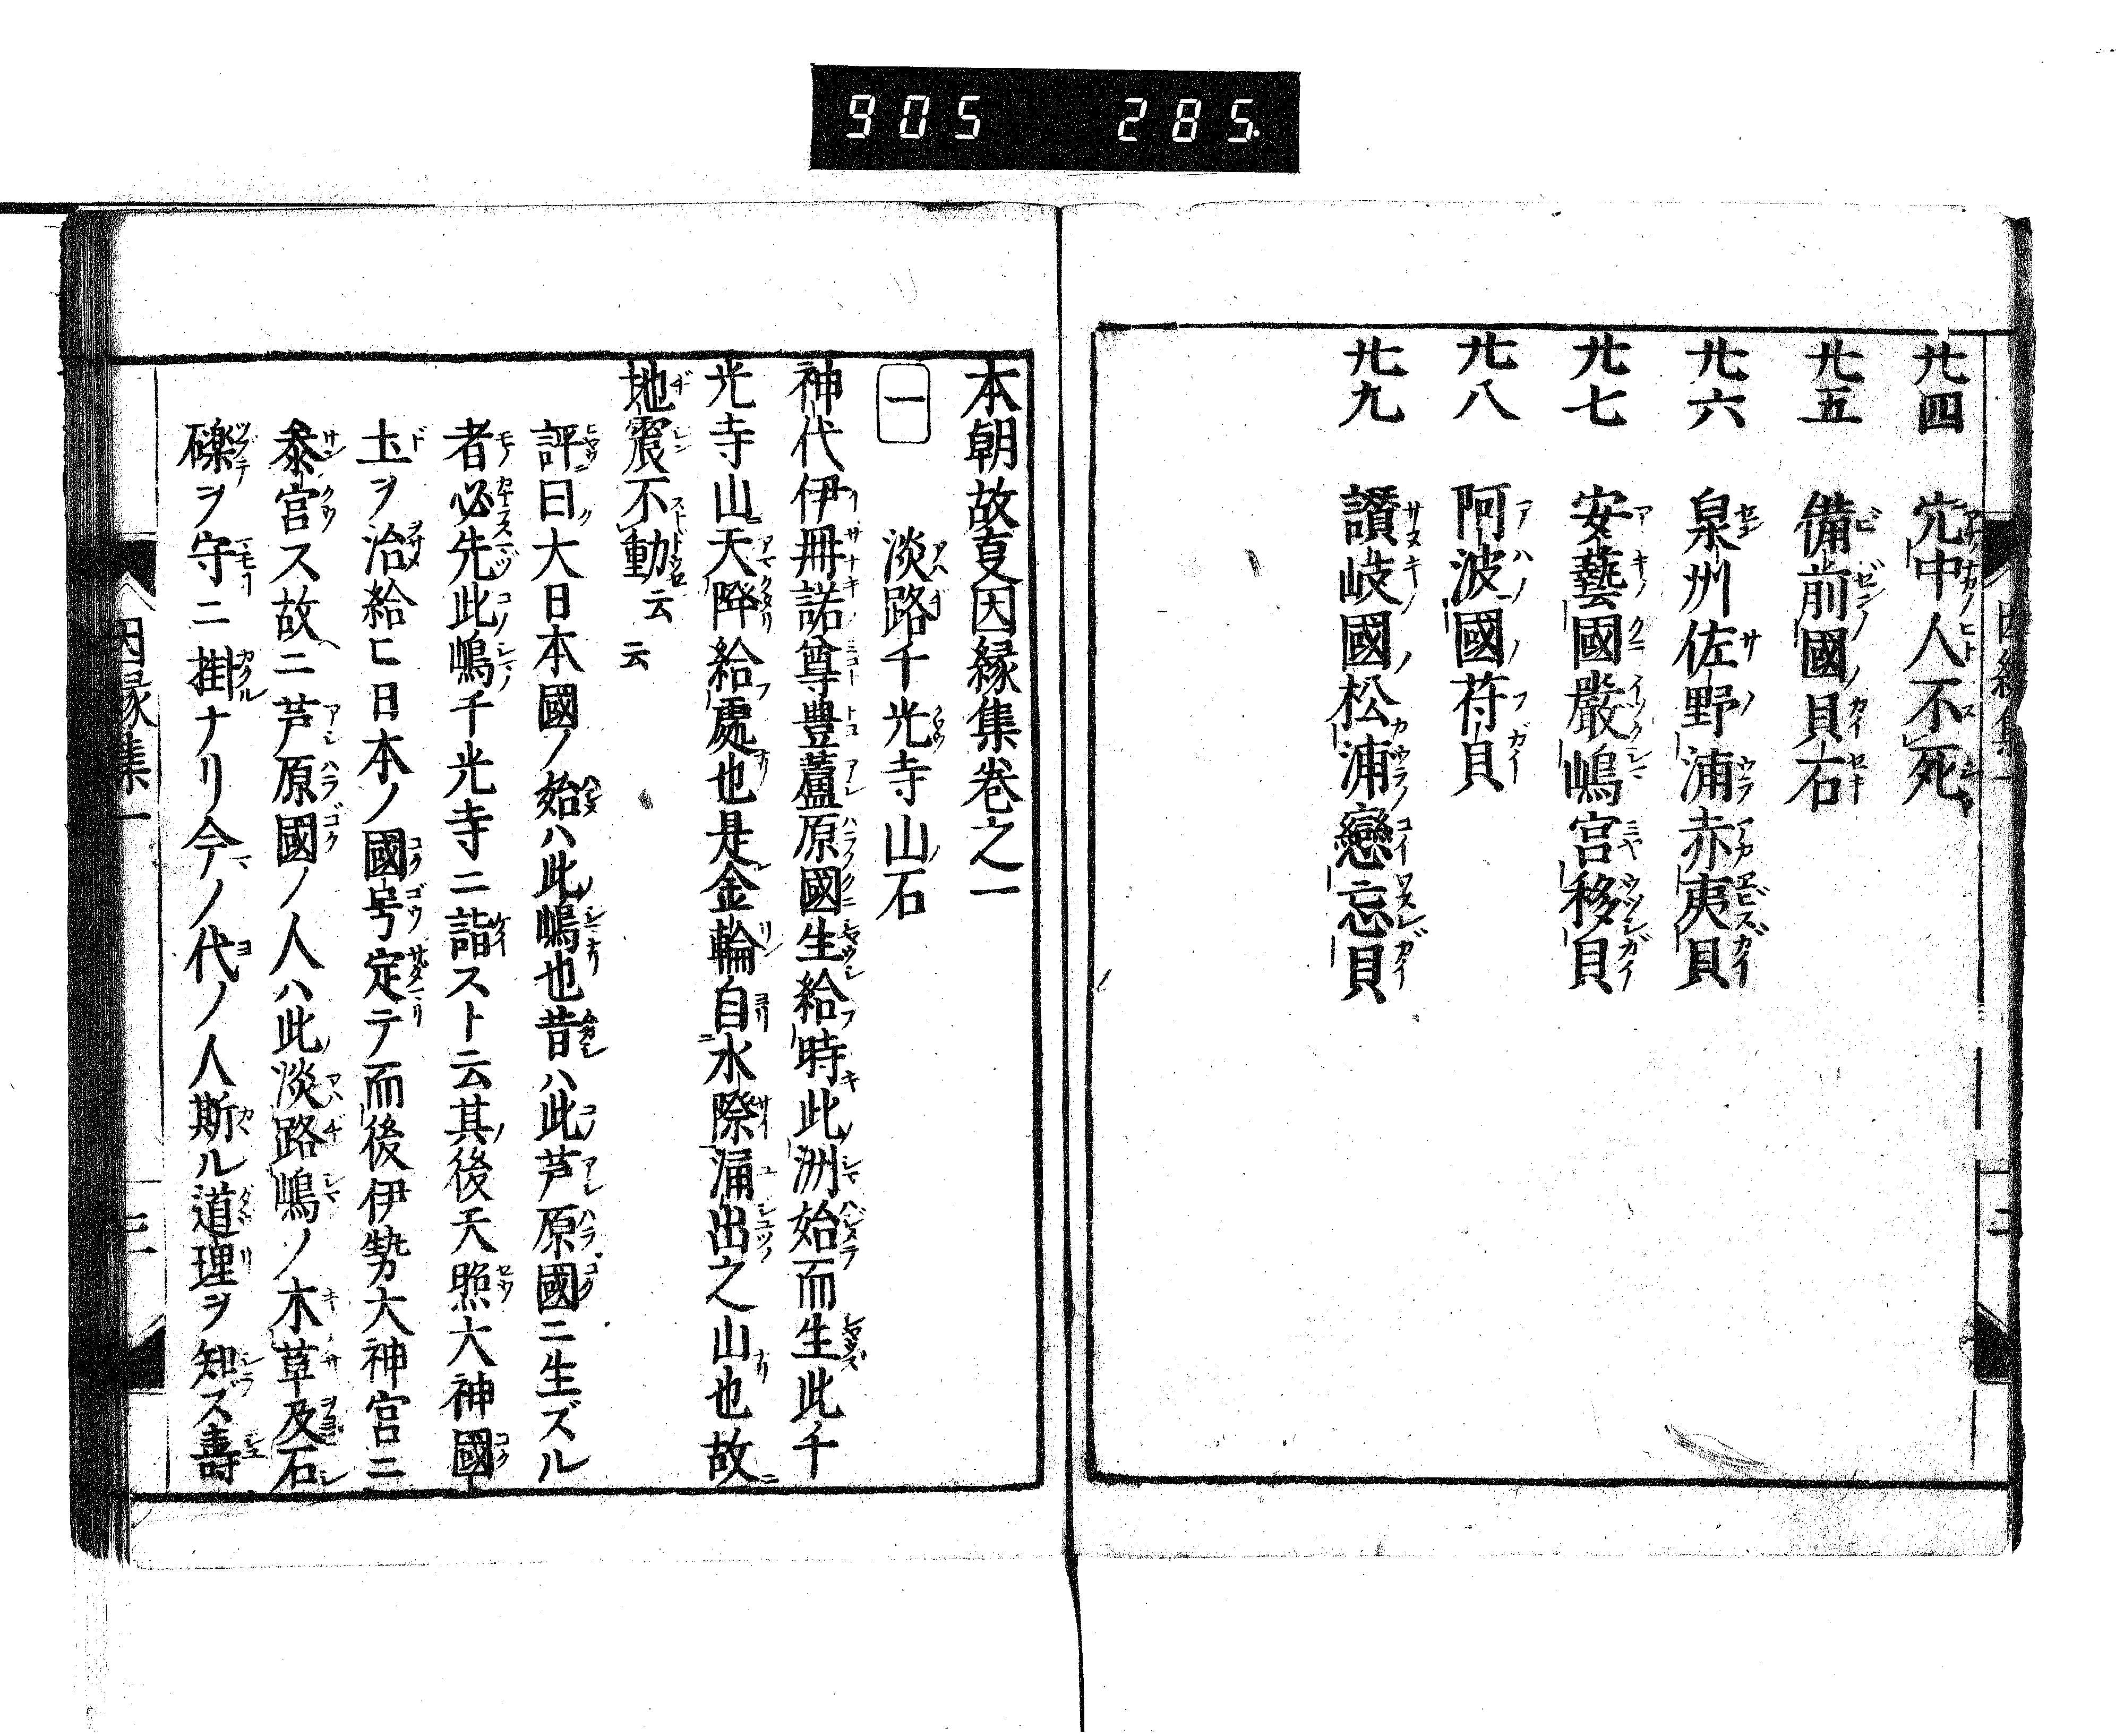 905 285.
廿四 穴中人不死
廿五 備前國貝石
廿六 泉州佐野浦赤夷貝
廿七 安藝國嚴嶋宮移貝
廿八 阿波國苻貝
廿九 讃岐國松浦戀忘貝
因縁集一 二
本朝故叓因縁集卷之一
一 淡路千光寺山石
神代伊冊諾尊豊蘆原國生給時此洲始而生此千
光寺山天降給處也是金輪自水際涌出之山也故
地震不動云云
評曰大日本國ノ始ハ此嶋也昔ハ此芦原國ニ生ズル
者必先此嶋千光寺ニ詣スト云其後天照大神國
土ヲ治給ヒ日本ノ國号定テ而後伊勢大神宮ニ
叅宮ス故ニ芦原國ノ人ハ此淡路嶋ノ木草及石
礫ヲ守ニ掛ナリ今ノ代ノ人斯ル道理ヲ知ス壽
因縁集一 三